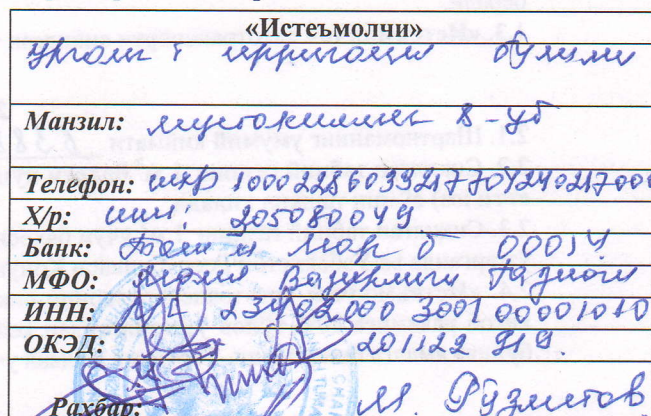 «Истеъмолчи»
ирригация булими
Манзил: мустакиллик 8-уй
Телефон: шхр 100022860392177042402017000
Х/р: инн: 205080049
Банк: Тош ш Мар б 00014
МФО: Молия Вазирлиги Газначи
ИНН: 23402000 3001 00001010
ОКЭД: 201122 919.
Рахбар: М. Рўзметов